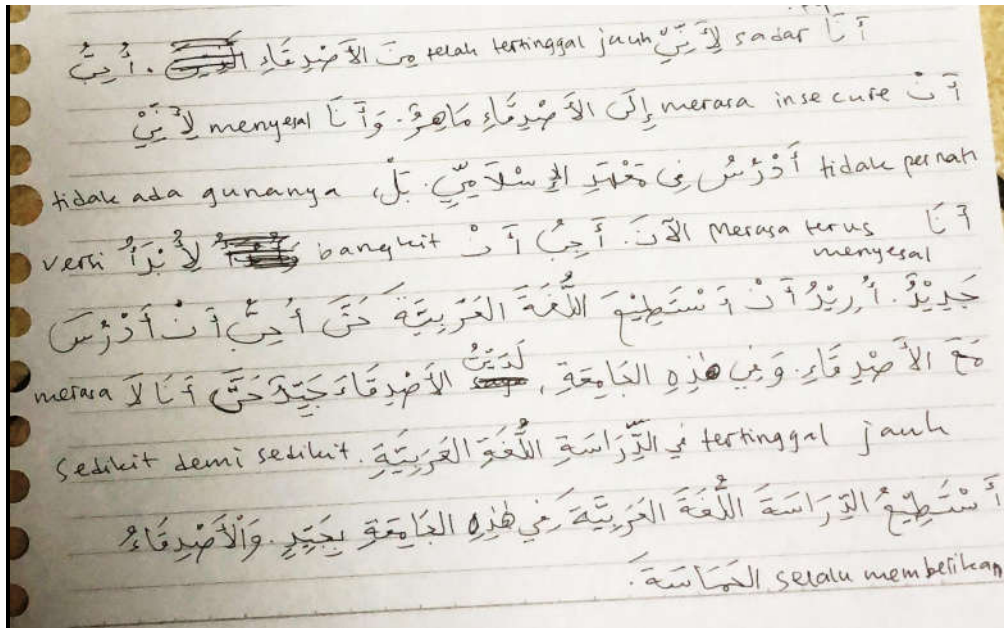 أَنَا sadar لِأَنِّيْ telah tertinggal jauh مِنَ الأَصْدِقَاءِ. أُحِبُّ
أَنْ merasa insecure إِلَى الأَصْدِقَاءِ مَاهِرٌ. وَأَنَا menyesal لِأَنِّيْ
tidak pernah أَدْرُسُ فِى مَعْهَدِ الإِسْلَامِيِّ. بَلْ، tidak ada gunanya
أَنَا merasa terus menyesal الآنَ. أُحِبُّ أَنْ bangkit لِأُبْدَأُ versi
جَدِيْدٌ. أُرِيْدُ أَنْ أَسْتَطِيْعَ اللُّغَةَ العَرَبِيَّةَ حَتَّى أُحِبُّ أَنْ أَدْرُسَ
مَعَ الأَصْدِقَاءِ. وَفِي هٰذِهِ الجَامِعَةِ، لَدَيَّ الأَصْدِقَاءَ جَيِّدٌ حَتَّى أَنَا لَا merasa
tertinggal jauh فِي الدِّرَاسَةِ اللُّغَةِ العَرَبِيَّةِ. sedikit demi sedikit
أَسْتَطِيْعُ الدِّرَاسَةَ اللُّغَةَ العَرَبِيَّةَ فِي هٰذِهِ الجَامِعَةِ بِجَيِّدٍ. وَالأَصْدِقَاءُ
selalu memberikan الحَمَاسَةَ.